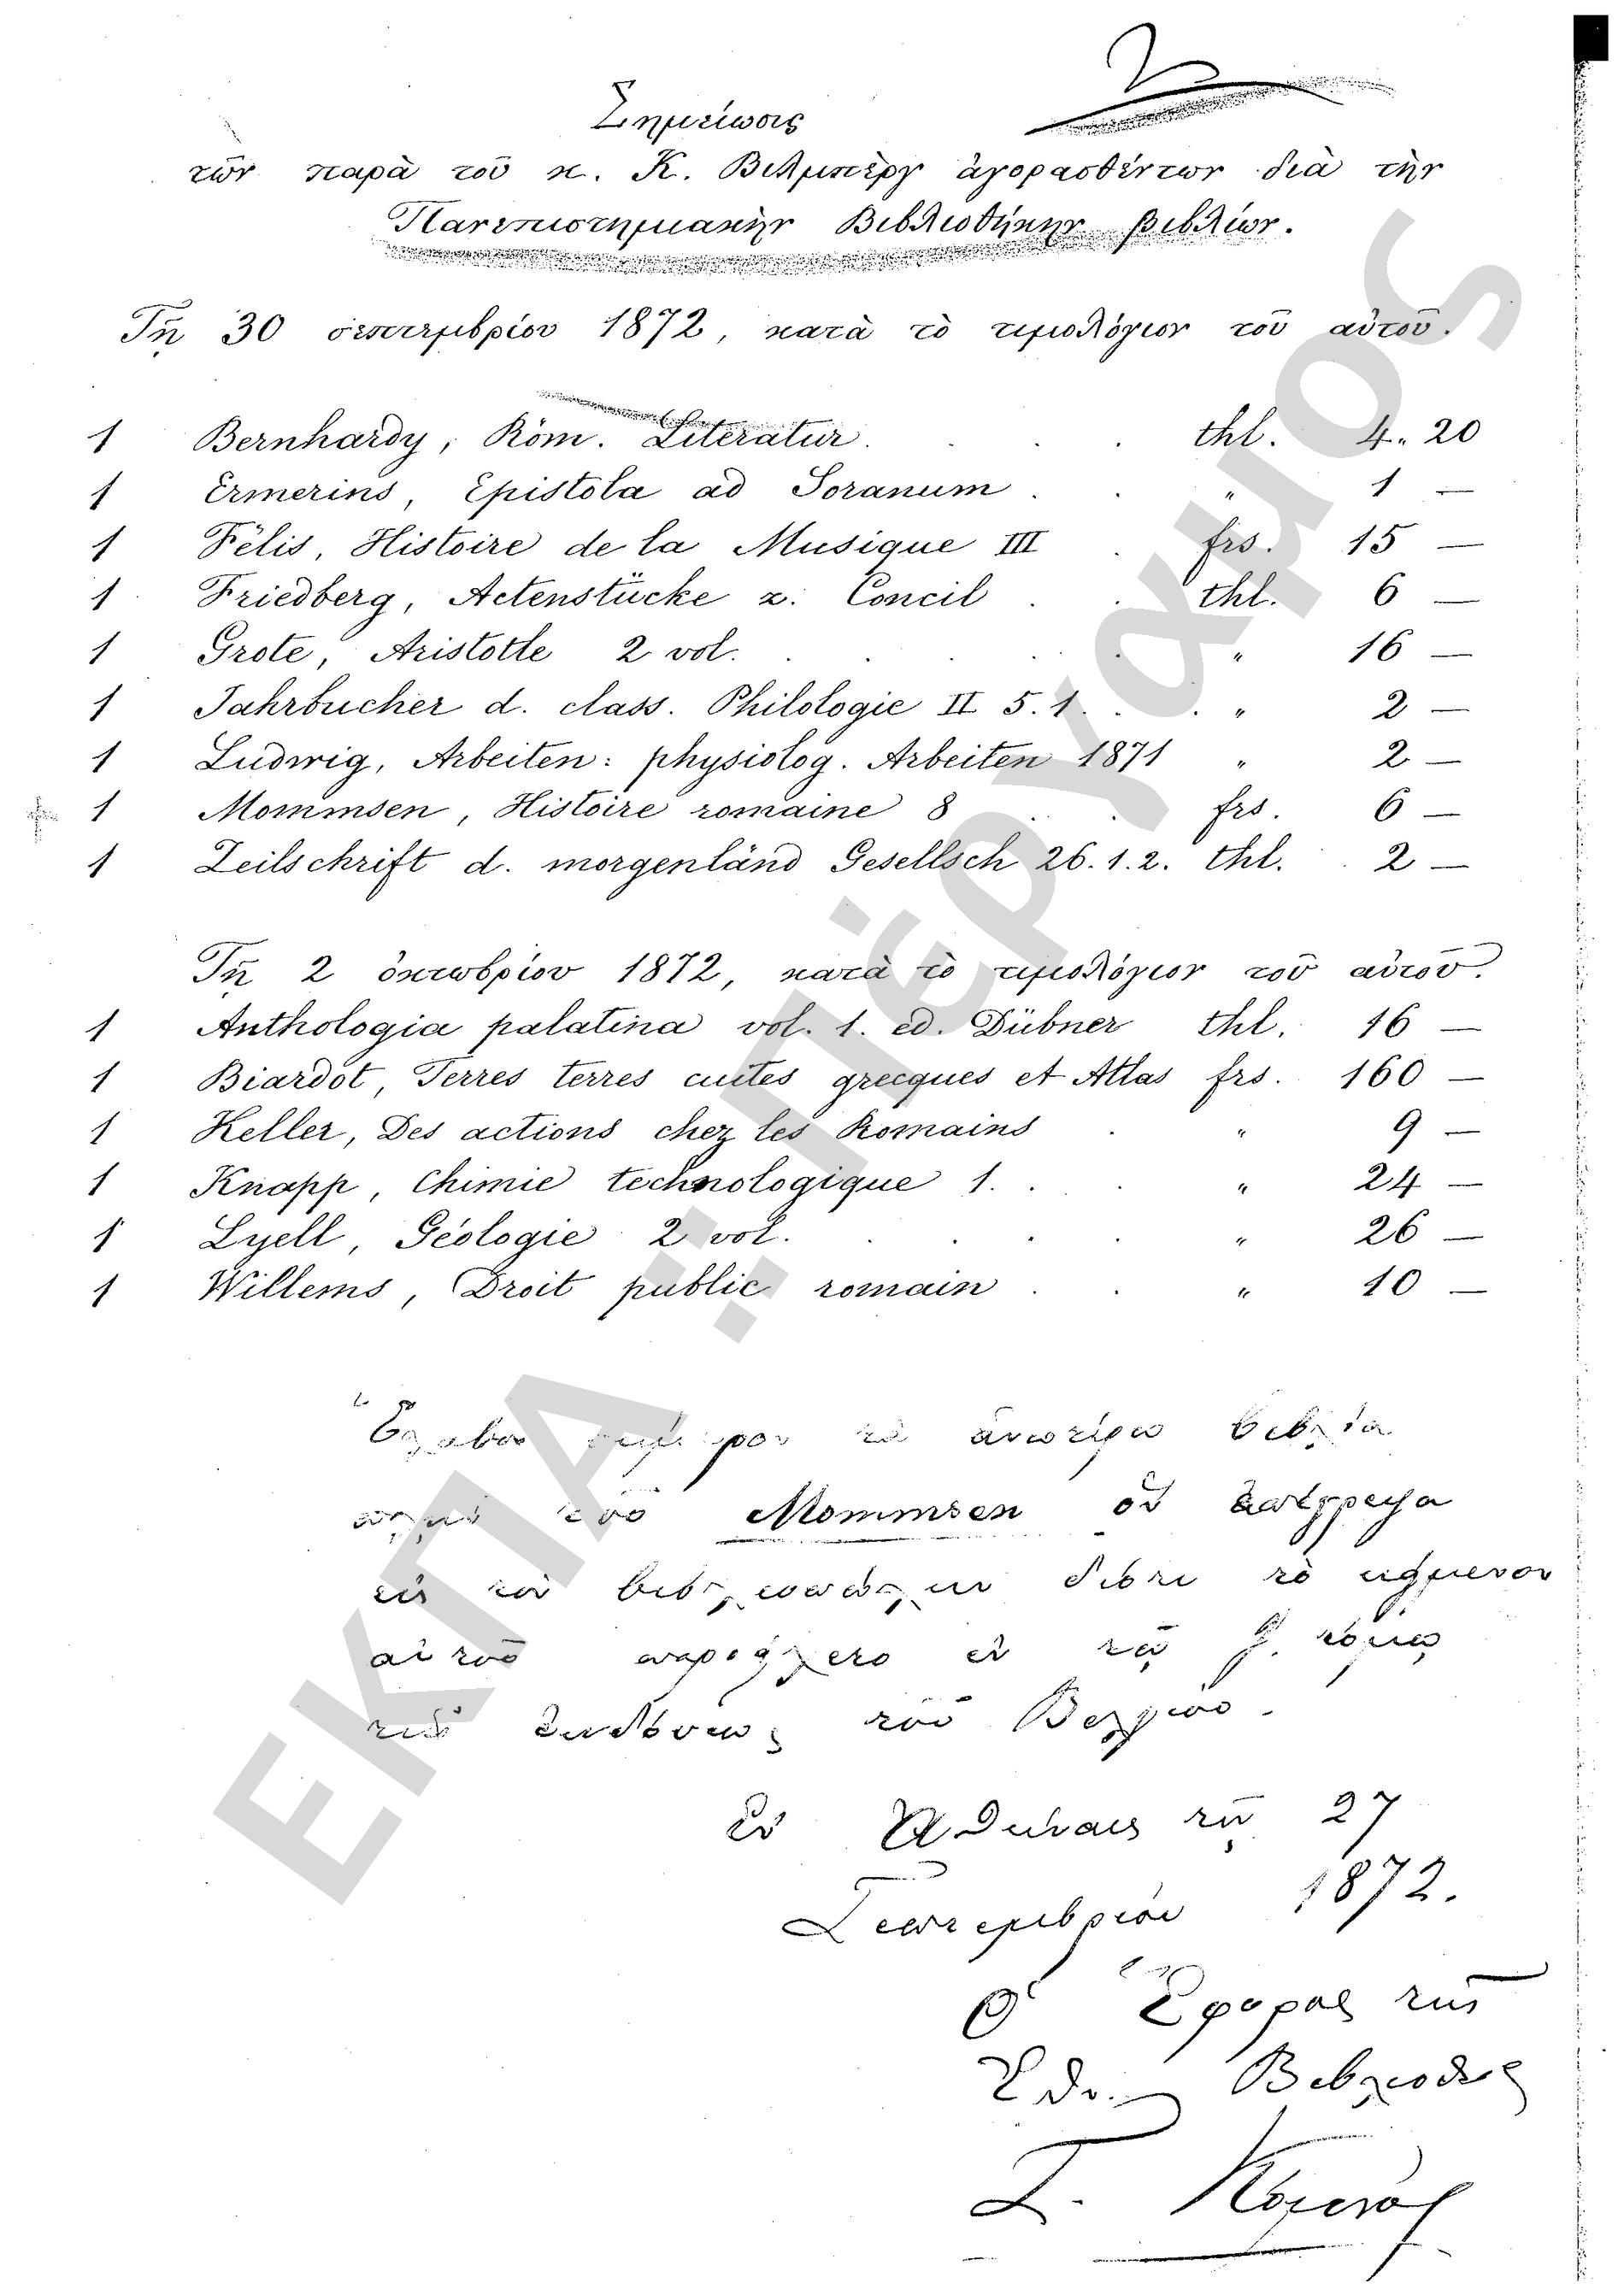 2
Σημείωσις
τῶν παρὰ τοῦ κ. Κ. Βίλμπεργ ἀγορασθέντων διὰ τὴν
Πανεπιστημιακὴν Βιβλιοθήκην βιβλίων.
Τῇ 30 σεπτεμβρίου 1872, κατὰ τὸ τιμολόγιον τοῦ αὐτοῦ.
1 Bernhardy, Röm. Literatur . . . thl. 4 " 20
1 Ermerins, Epistola ad Soranum . . " 1 —
1 Fétis, Histoire de la Musique III . frs. 15 —
1 Friedberg, Actenstücke z. Concil . . thl. 6 —
1 Grote, Aristotle 2 vol. . . . . . " 16 —
1 Jahrbucher d. class. Philologie II 5. 1. . . " 2 —
1 Ludwig, Arbeiten: physiolog. Arbeiten 1871 " 2 —
1 Mommsen, Histoire romaine 8 . . frs. 6 —
1 Zeitschrift d. morgenländ Gesellsch 26. 1. 2. thl. 2 —
Τῇ 2 ὀκτωβρίου 1872, κατὰ τὸ τιμολόγιον τοῦ αὐτοῦ.
1 Anthologia palatina vol. 1. ed. Dübner thl. 16 —
1 Biardot, Terres terres cuites grecques et Atlas frs. 160 —
1 Keller, Des actions chez les Romains . " 9 —
1 Knapp, Chimie technologique 1. . . " 24 —
1 Lyell, Géologie 2 vol. . . . . " 26 —
1 Willems, Droit public romain . . " 10 —
Ἔλαβον σήμερον τὰ ἀνωτέρω βιβλία
πλὴν τοῦ Mommsen ὃν ἐπέστρεψα
εἰς τὸν βιβλιοπώλην διότι τὸ κείμενον
αὐτοῦ περιείχετο εἰς τὴν τόμον
τῆς ἐκδόσεως τοῦ Βελγίου.
Ἐν Ἀθήναις τῇ 27
Σεπτεμβρίου 1872.
Ὁ Ἔφορος τῆς
Ἐθν. Βιβλιοθήκης
ΕΚΠΑ : Πέργαμος